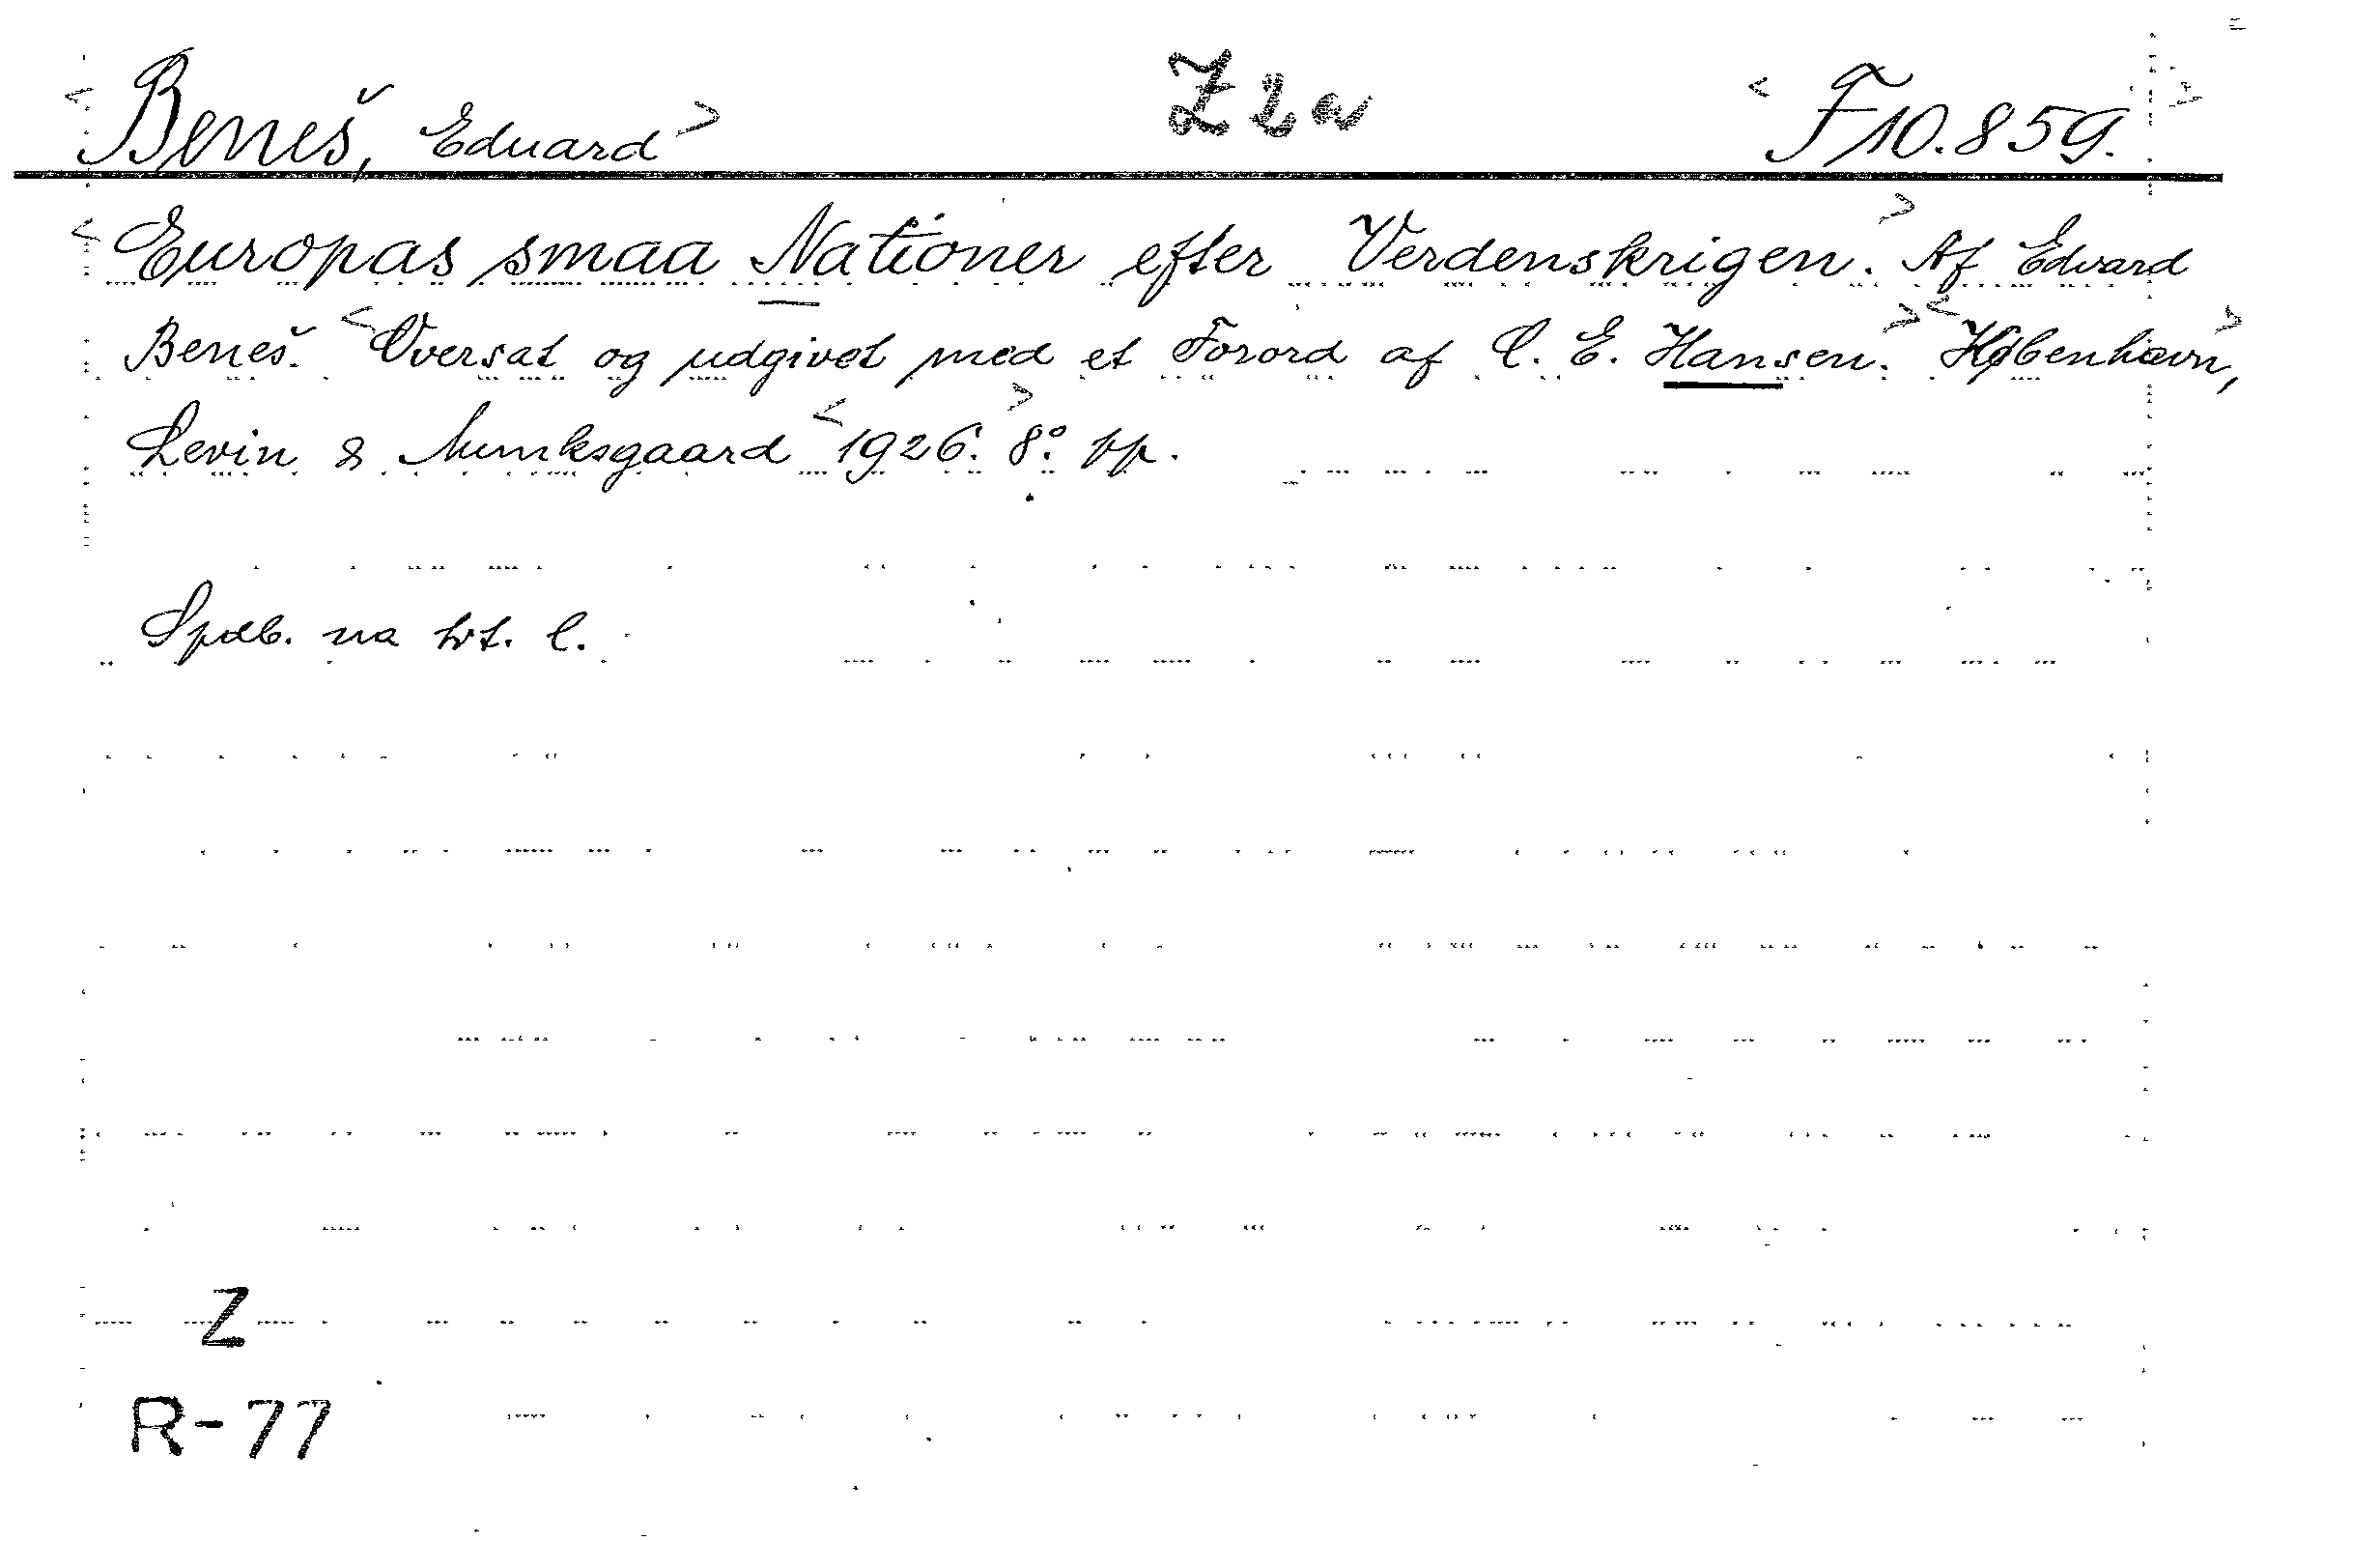 <Beneš, Eduard> Z 2 a <F 10.859.>
<Europas smaa Nationer efter Verdenskrigen.> Af Edvard
Beneš. <Oversat og udgivet med et Forord af C. E. Hansen.> <København,>
Levin & Munksgaard <1926.> 8° pp.
Spdb. na trt. l.
Z
R-77